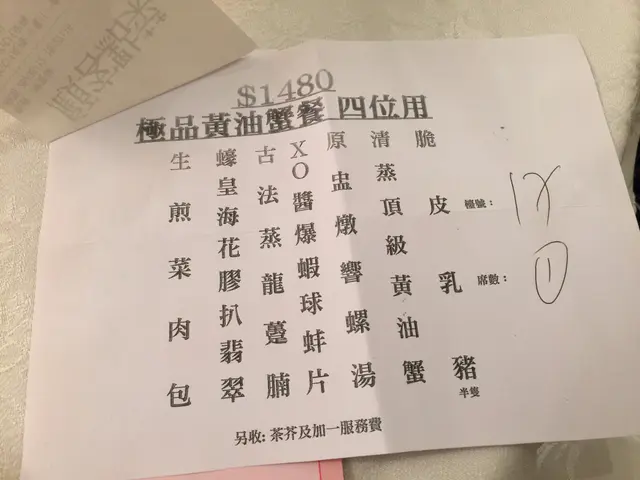 $1480
極品黃油蟹餐 四位用
脆皮乳豬
半隻
清蒸頂級黃油蟹
原盅燉響螺湯
XO醬爆蝦球蚌片
古法蒸龍躉腩
蠔皇海花膠扒翡翠
生煎菜肉包
檯號：
席數： 1
另收: 茶芥及加一服務費